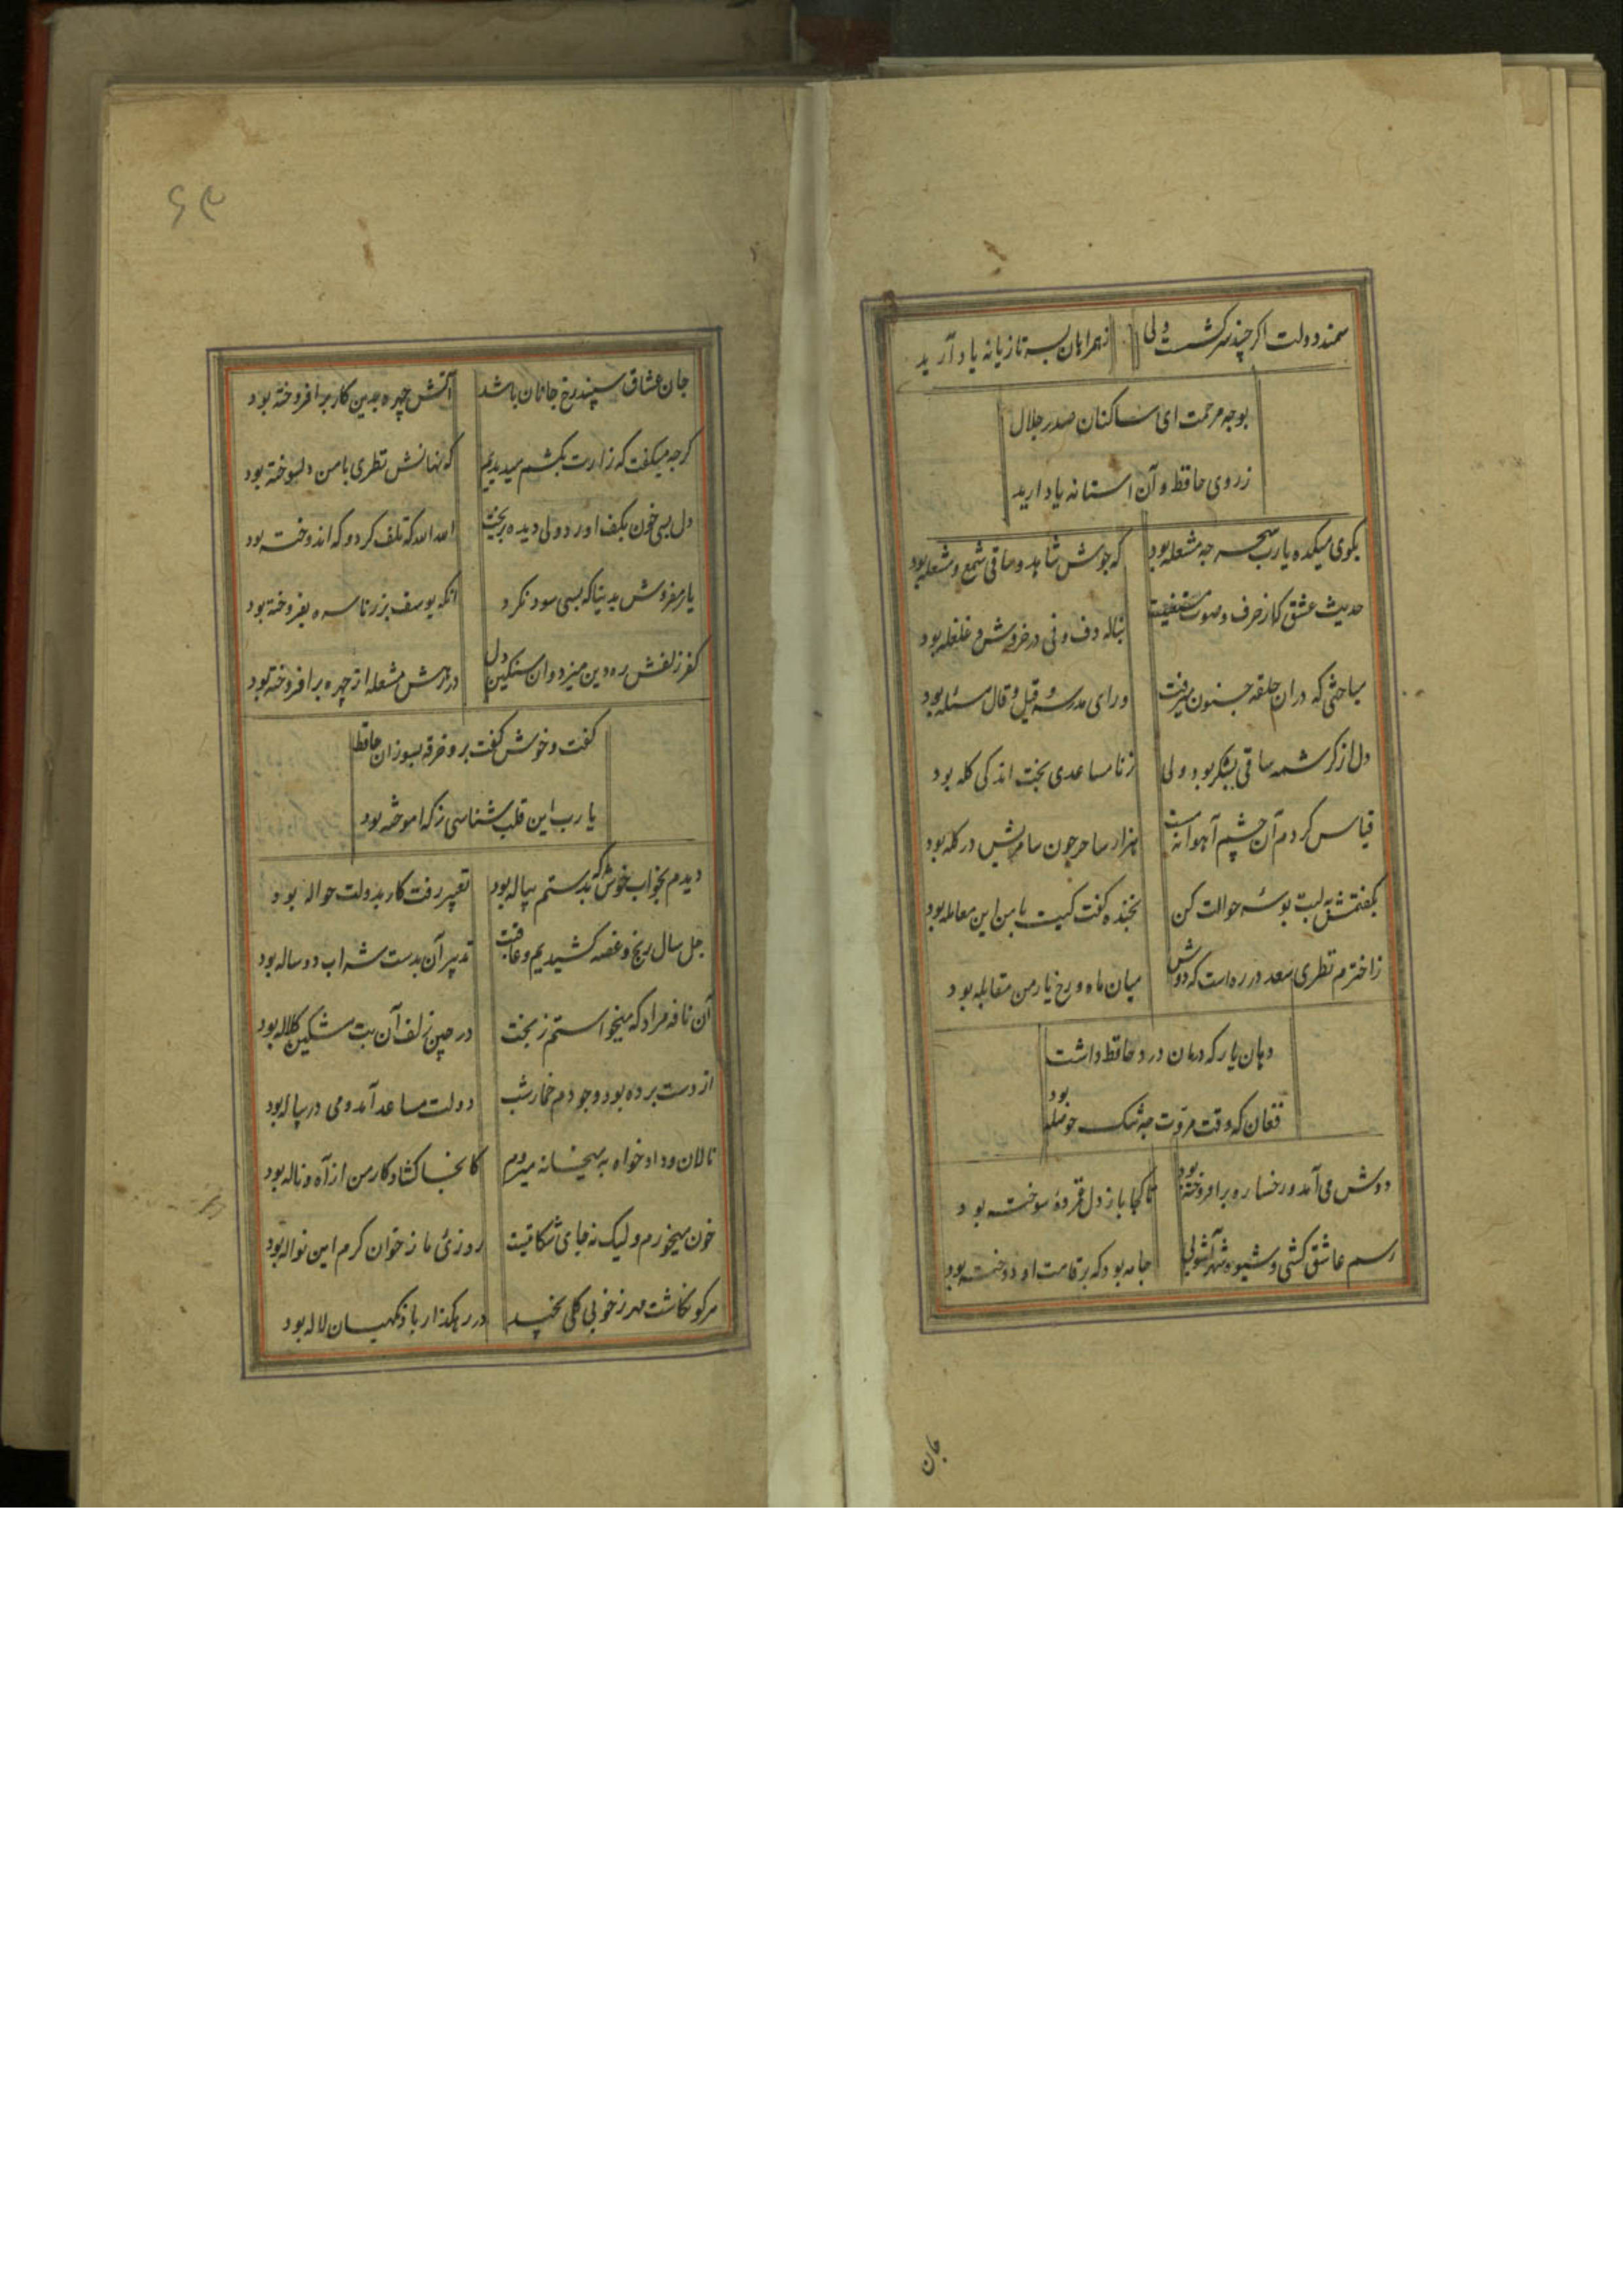 سمند دولت اکر چند سرکشست ولی زهمراهان بسر تازیانه یاد آرید
بوجه مرحمت ای ساکنان صدر جلال
ز روی حافظ و آن استانه یاد ارید
بکوی میکده یا رب سحر جه مشعله بود که جوش شاهد و ساقی شمع و مشعله بود
حدیث عشق که از حرف و صوت مستغنیست بناله دف و نی در خروش و غلغله بود
مباحثی که دران حلقه جنون میرفت ورای مدرسه و قیل و قال مسئله بود
دل از کرشمه ساقی بشکر بود ولی ز نا مساعدی بخت اندکی کله بود
قیاس کردم آن چشم آهوانه مست هزار ساحر چون سامریش در کله بود
بکفتمش به لبت بوسهٔ حوالت کن بخنده کفت کیت با من این معامله بود
ز اخترم نظری سعد در ره است که دوش میان ماه و رخ یار من مقابله بود
دهان یار که درمان درد حافظ داشت
فغان که وقت مروت جه تنک حوصله بود
دوش می آمد و رخساره برافروخته بود تا کجا باز دل غمزدهٔ سوخته بود
رسم عاشق کشی و شیوه شهر آشوبی جامه بود که بر قامت او دوخته بود
جان
۶۳
جان عشاق سپند رخ جانان باشد آتش چهره بدین کار برافروخته بود
کرجه میکفت که زارت بکشم میدیدیم که نهانش نظری با من دلسوخته بود
دل بسی خون بکف اورد ولی دیده بریخت الله الله که تلف کرد و که اندوخته بود
یار مفروش بدنیا که بسی سود نکرد انکه یوسف بزر ناسره بفروخته بود
کفر زلفش ره دین میزد وان سنکین دل در رهش مشعله از چهره برافروخته بود
کفت و خوش کفت برو خرقه بسوزان حافظ
یا رب این قلب شناسی ز که اموخته بود
دیدم بخواب خوش که بدستم پیاله بود تعبیر رفت کار بدولت حواله بود
جل سال رنج و غصه کشیدیم و عاقبت تدبیر آن بدست شراب دوساله بود
آن نافه مراد که میخواستم ز بخت در چین زلف آن بت مشکین کلاله بود
از دست برده بود وجودم خمار شب دولت مساعد آمد و می در پیاله بود
نالان و داد خواه به میخانه میروم کانجا کشاد کار من از آه و ناله بود
خون میخورم ولیک نه جای شکایتست روزئ ما ز خوان کرم این نواله بود
هر کو نکاشت مهر ز خوبی کلی نچید در رهکذار باد نکهبان لاله بود